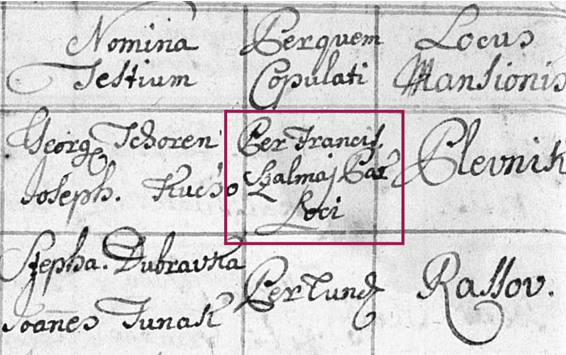 Nomina
Testium
Per quem
Copulati
Locus
Mansionis
Georg Tchoren
Joseph. Kucho
Per Francis.
Szalmaj Par
Loci
Plevnik
Stepha. Dubravka
Joanes Tunak
Per Eund
Rassov.